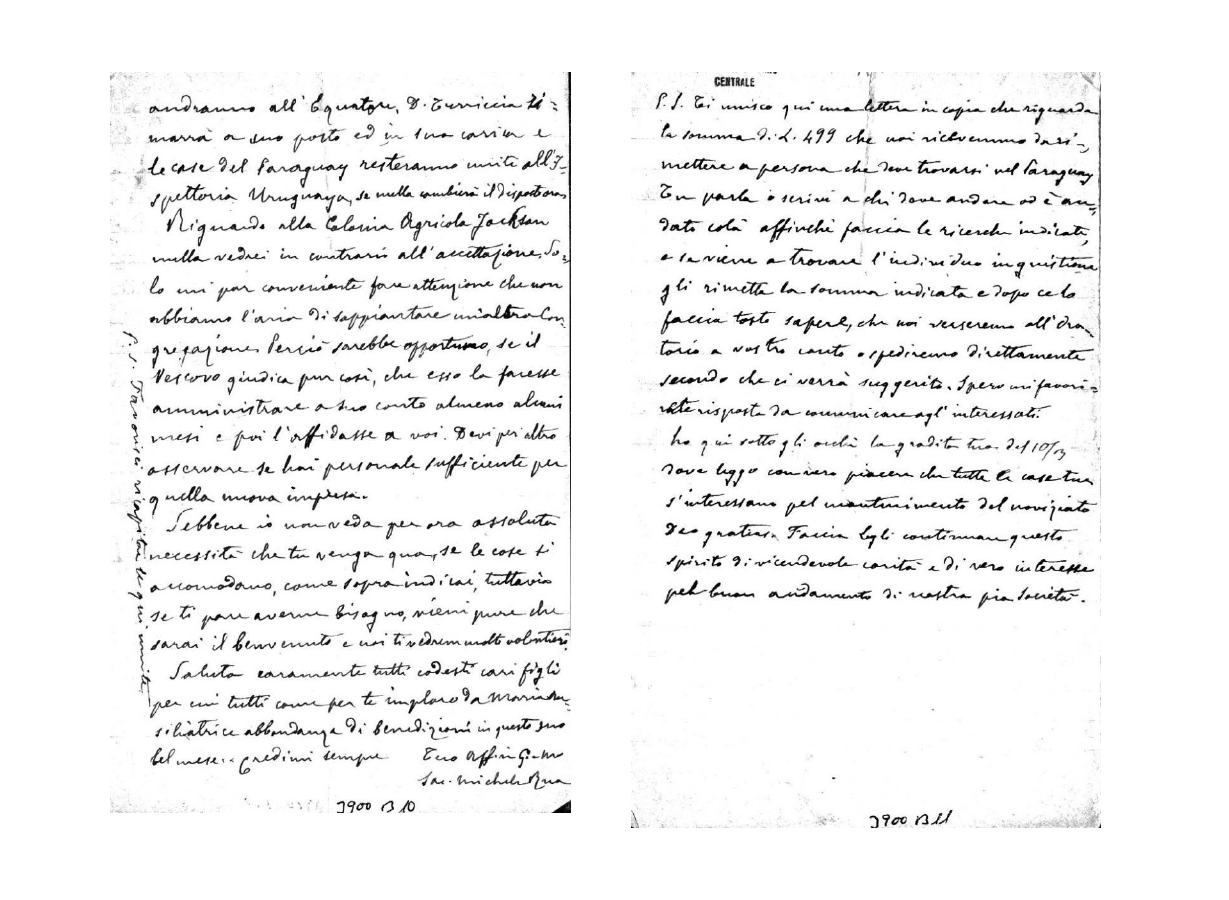 andranno all'Equatore, D. Turriccia ri=
marrà a suo posto ed in sua carica e
le case del Paraguay resteranno unite all'I-
spettoria Uruguaya, se nulla cambierà il disposto ora
Riguardo alla Colonia Agricola Jackson
nulla vedrei in contrario all'accettazione. So=
lo mi par conveniente fare attenzione che non
abbiamo l'aria di soppiantare un'altra Con=
gregazione. Perciò sarebbe opportuno, se il
Vescovo giudica pur così, che esso la facesse
amministrare a suo conto almeno alcuni
mesi e poi l'affidasse a voi. Devi per altro
osservare se hai personale sufficiente per
quella nuova impresa.
Sebbene io non veda per ora assoluta
necessità che tu venga qua, se le cose si
accomodano, come sopra indicai, tuttavia
se ti pare averne bisogno, vieni pure che
sarai il benvenuto e noi ti vedrem molto volentieri.
Saluta caramente tutti codesti cari figli
per cui tutti come per te imploro da Maria Au=
siliatrice abbondanza di benedizioni in questo suo
bel mese. Credimi sempre Tuo Aff. in G. e M.
Sac. Michele Rua
P.S. Favorisci ricapitar le qui unite
3900 B 10
CENTRALE
P.S. Ti unisco qui una lettera in copia che riguarda
la somma di L. 499 che noi ricevemmo da ri=
mettere a persona che deve trovarsi nel Paraguay
Tu parla o scrivi a chi deve andare od è an=
dato colà affinchè faccia le ricerche indicate,
e se viene a trovare l'individuo in questione
gli rimetta la somma indicata e dopo ce lo
faccia tosto sapere, che noi verseremo all'Ora=
torio a vostro conto o spediremo direttamente
secondo che ci verrà suggerito. Spero mi favori=
rete risposta da comunicare agl'interessati.
ho qui sotto gli occhi la gradita tua del 10/3
dove leggo con vero piacere che tutte le case tue
s'interessano pel mantenimento del noviziato
Deo gratias. Faccia Egli continuare questo
spirito di vicendevole carità e di vero interesse
pel buon andamento di nostra pia Società.
3900 B 11